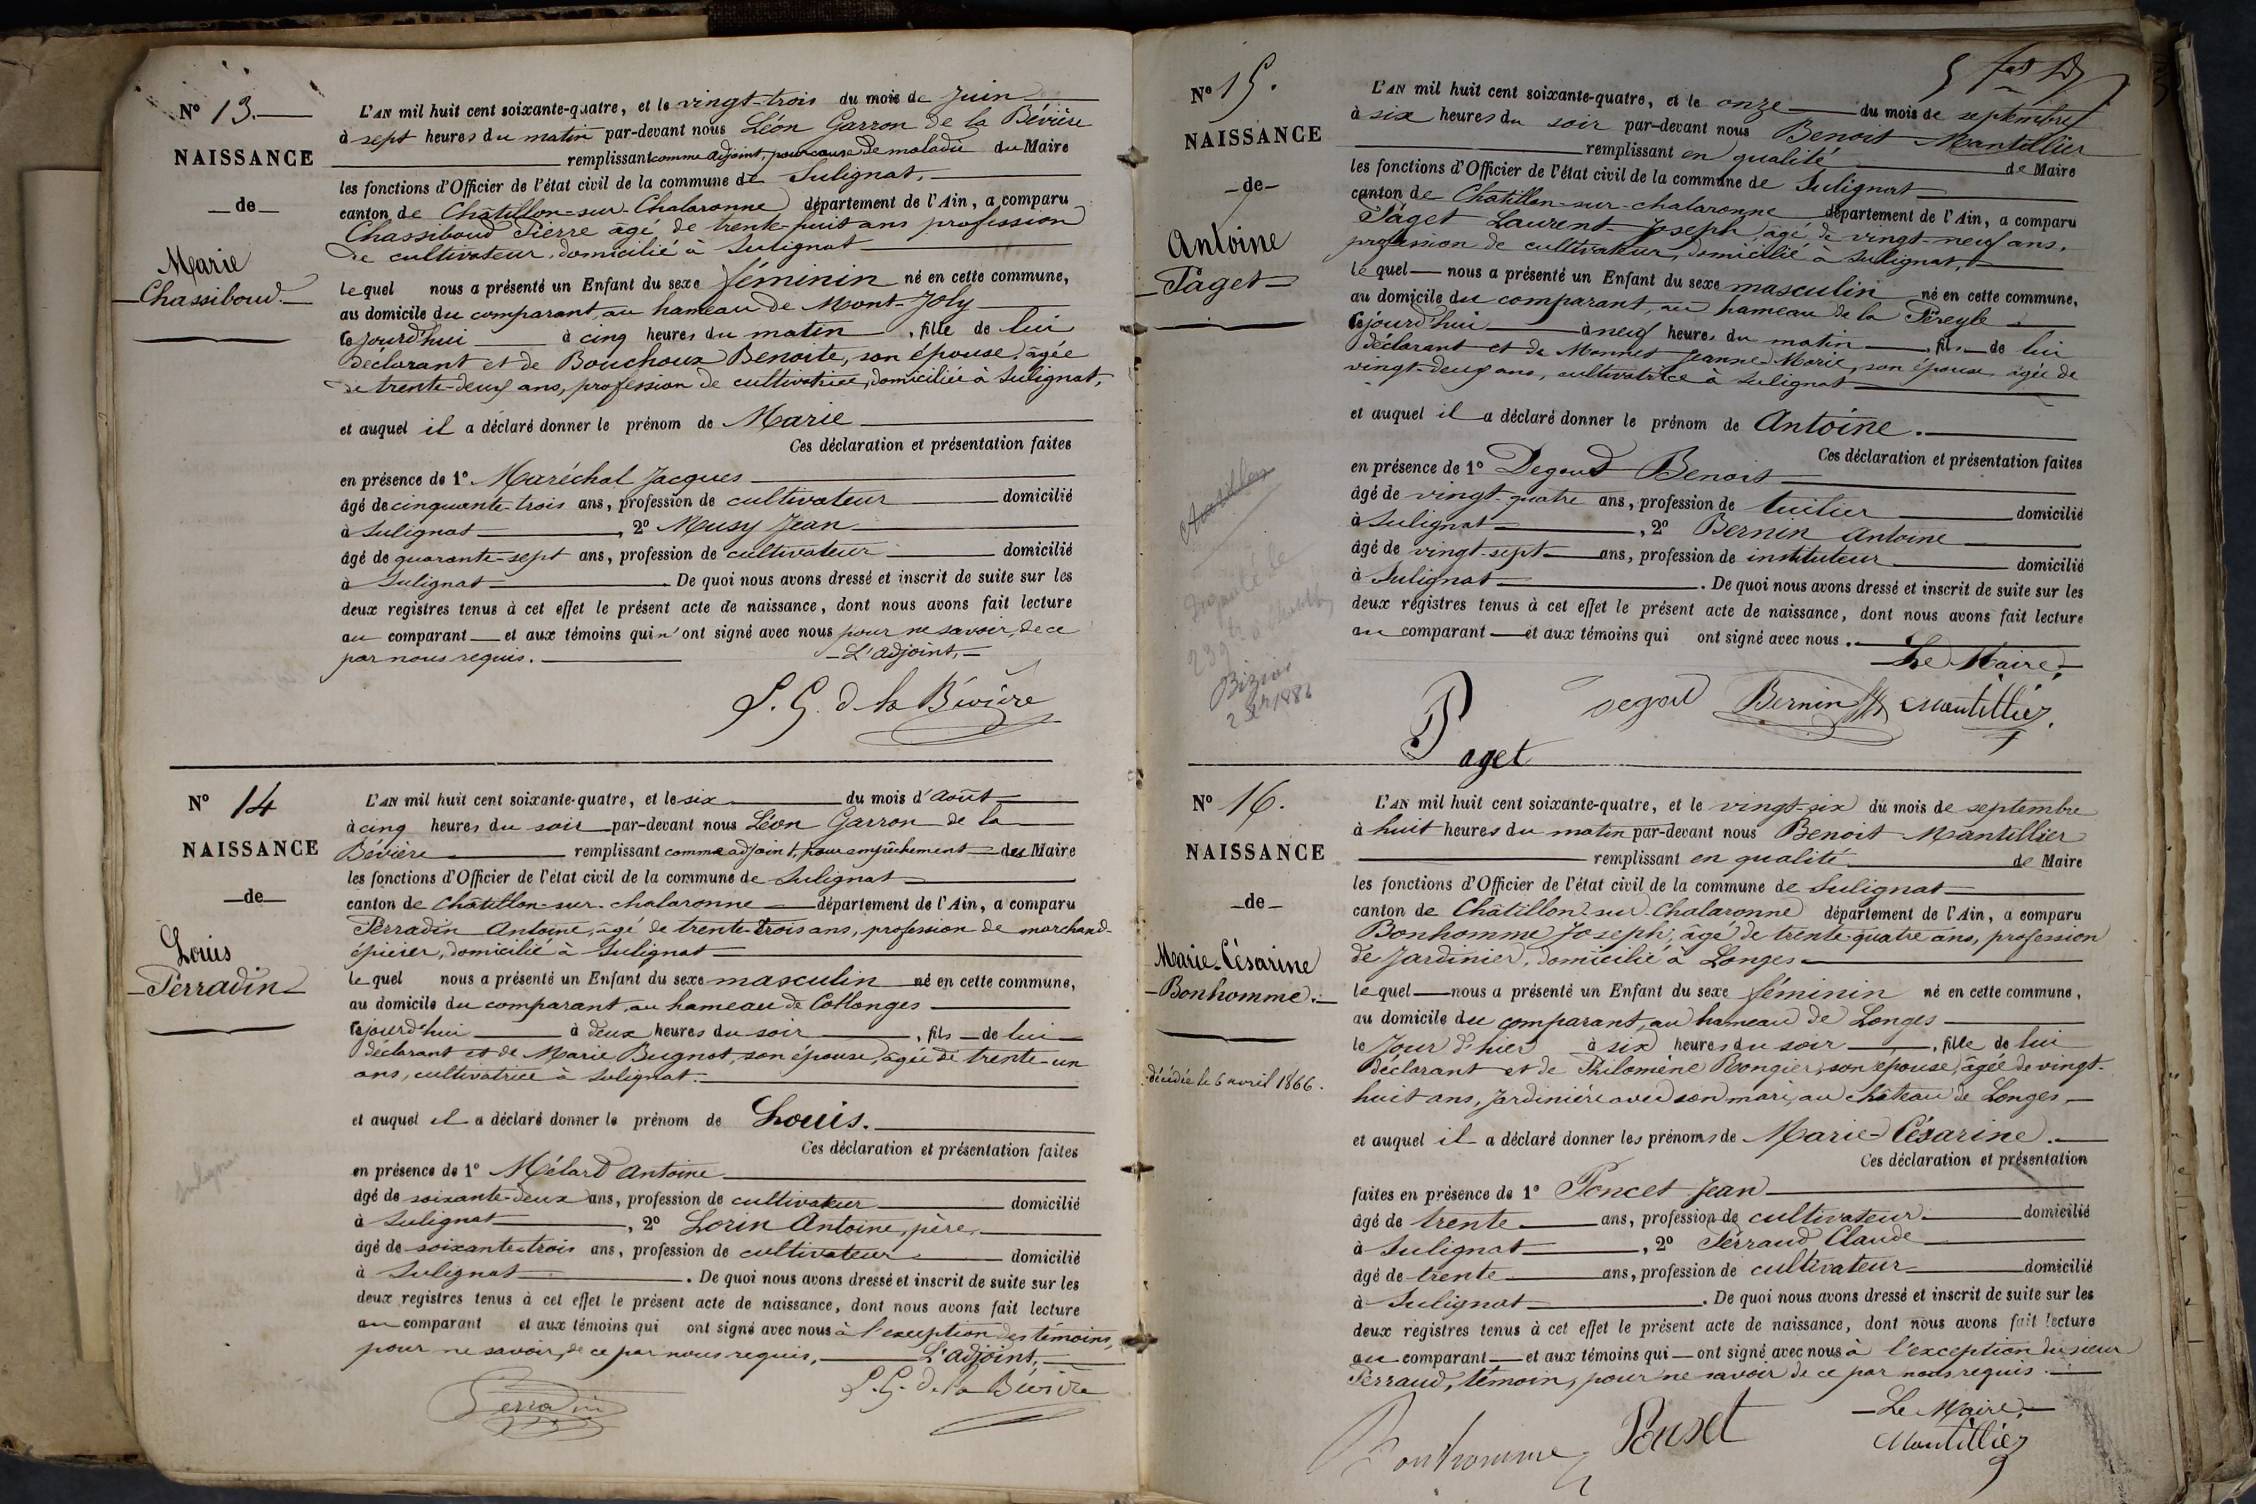 N° 13.
NAISSANCE
de
Marie
Chassiboud.
L'AN mil huit cent soixante-quatre, et le vingt-trois du mois de Juin
à sept heures du matin par-devant nous Léon Garron de la Bévière
remplissant comme adjoint, pour cause de maladie du Maire
les fonctions d'Officier de l'état civil de la commune de Sulignat,
canton de Châtillon-sur-Chalaronne département de l'Ain, a comparu
Chassiboud Pierre âgé de trente-huit ans profession
de cultivateur, domicilié à Sulignat
le quel nous a présenté un Enfant du sexe féminin né en cette commune,
au domicile du comparant, au hameau de Mont-Joly
cejourd'hui à cinq heures du matin, fille de lui
déclarant et de Bouchoux Benoite, son épouse, âgée
de trente-deux ans, profession de cultivatrice, domiciliée à Sulignat,
et auquel il a déclaré donner le prénom de Marie
Ces déclaration et présentation faites
en présence de 1° Maréchal Jacques
âgé de cinquante-trois ans, profession de cultivateur domicilié
à Sulignat, 2° Musy Jean
âgé de quarante-sept ans, profession de cultivateur domicilié
à Sulignat. De quoi nous avons dressé et inscrit de suite sur les
deux registres tenus à cet effet le présent acte de naissance, dont nous avons fait lecture
au comparant et aux témoins qui n'ont signé avec nous pour ne savoir, de ce
par nous requis. L'adjoint,
L. G. d. la Bévière
N° 14
NAISSANCE
de
Louis
Perradin
L'AN mil huit cent soixante-quatre, et le six du mois d'Août
à cinq heures du soir par-devant nous Léon Garron de la
Bévière remplissant comme adjoint, pour empêchement du Maire
les fonctions d'Officier de l'état civil de la commune de Sulignat
canton de Châtillon-sur-chalaronne département de l'Ain, a comparu
Perradin Antoine, âgé de trente-trois ans, profession de marchand-
épicier, domicilié à Sulignat
le quel nous a présenté un Enfant du sexe masculin né en cette commune,
au domicile du comparant, au hameau de Collonges
cejourd'hui à deux heures du soir, fils de lui
déclarant et de Marie Bugnot, son épouse, âgée de trente-un
ans, cultivatrice à Sulignat.
et auquel il a déclaré donner le prénom de Louis.
Ces déclaration et présentation faites
en présence de 1° Mélard Antoine
âgé de soixante-deux ans, profession de cultivateur domicilié
à Sulignat, 2° Lorin Antoine, père,
âgé de soixante-trois ans, profession de cultivateur domicilié
à Sulignat. De quoi nous avons dressé et inscrit de suite sur les
deux registres tenus à cet effet le présent acte de naissance, dont nous avons fait lecture
au comparant et aux témoins qui ont signé avec nous à l'exception des témoins,
pour ne savoir, de ce par nous requis, L'adjoint,
Perradin L. G. d. la Bévière
N° 15.
NAISSANCE
de
Antoine
Pâget
Bizion
1886
L'AN mil huit cent soixante-quatre, et le onze du mois de septembre
à six heures du soir par-devant nous Benoit Mantillier
remplissant en qualité de Maire
les fonctions d'Officier de l'état civil de la commune de Sulignat
canton de Châtillon-sur-chalaronne département de l'Ain, a comparu
Pâget Laurent-Joseph, âgé de vingt-neuf ans,
profession de cultivateur, domicilié à Sulignat,
le quel nous a présenté un Enfant du sexe masculin né en cette commune,
au domicile du comparant, au hameau de la
cejourd'hui à neuf heures du matin, fils de lui
déclarant et de Monnet Jeanne Marie, son épouse, âgée de
vingt-deux ans, cultivatrice à Sulignat
et auquel il a déclaré donner le prénom de Antoine.
Ces déclaration et présentation faites
en présence de 1° Degoud Benoit
âgé de vingt-quatre ans, profession de tuilier domicilié
à Sulignat, 2° Bernin Antoine
âgé de vingt-sept ans, profession de instituteur domicilié
à Sulignat. De quoi nous avons dressé et inscrit de suite sur les
deux registres tenus à cet effet le présent acte de naissance, dont nous avons fait lecture
au comparant et aux témoins qui ont signé avec nous.
Le Maire,
Degoud Bernin Mantillier
Paget
N° 16.
NAISSANCE
de
Marie-Césarine
Bonhomme.
décédée le 6 avril 1866.
L'AN mil huit cent soixante-quatre, et le vingt-six du mois de septembre
à huit heures du matin par-devant nous Benoit Mantillier
remplissant en qualité de Maire
les fonctions d'Officier de l'état civil de la commune de Sulignat
canton de Châtillon-sur-Chalaronne département de l'Ain, a comparu
Bonhomme Joseph, âgé de trente-quatre ans, profession
de jardinier, domicilié à Longes
le quel nous a présenté un Enfant du sexe féminin né en cette commune,
au domicile du comparant, au hameau de Longes
le jour d'hier à six heures du soir, fille de lui
déclarant et de Philomène Rongier, son épouse, âgée de vingt-
huit ans, jardinière avec son mari, au château de Longes,
et auquel il a déclaré donner les prénoms de Marie-Césarine.
Ces déclaration et présentation
faites en présence de 1° Poncet Jean
âgé de trente ans, profession de cultivateur domicilié
à Sulignat, 2° Perraud Claude
âgé de trente ans, profession de cultivateur domicilié
à Sulignat. De quoi nous avons dressé et inscrit de suite sur les
deux registres tenus à cet effet le présent acte de naissance, dont nous avons fait lecture
au comparant et aux témoins qui ont signé avec nous à l'exception du sieur
Perraud, témoin, pour ne savoir de ce par nous requis.
Le Maire,
Bonhomme Ponset Mantillier